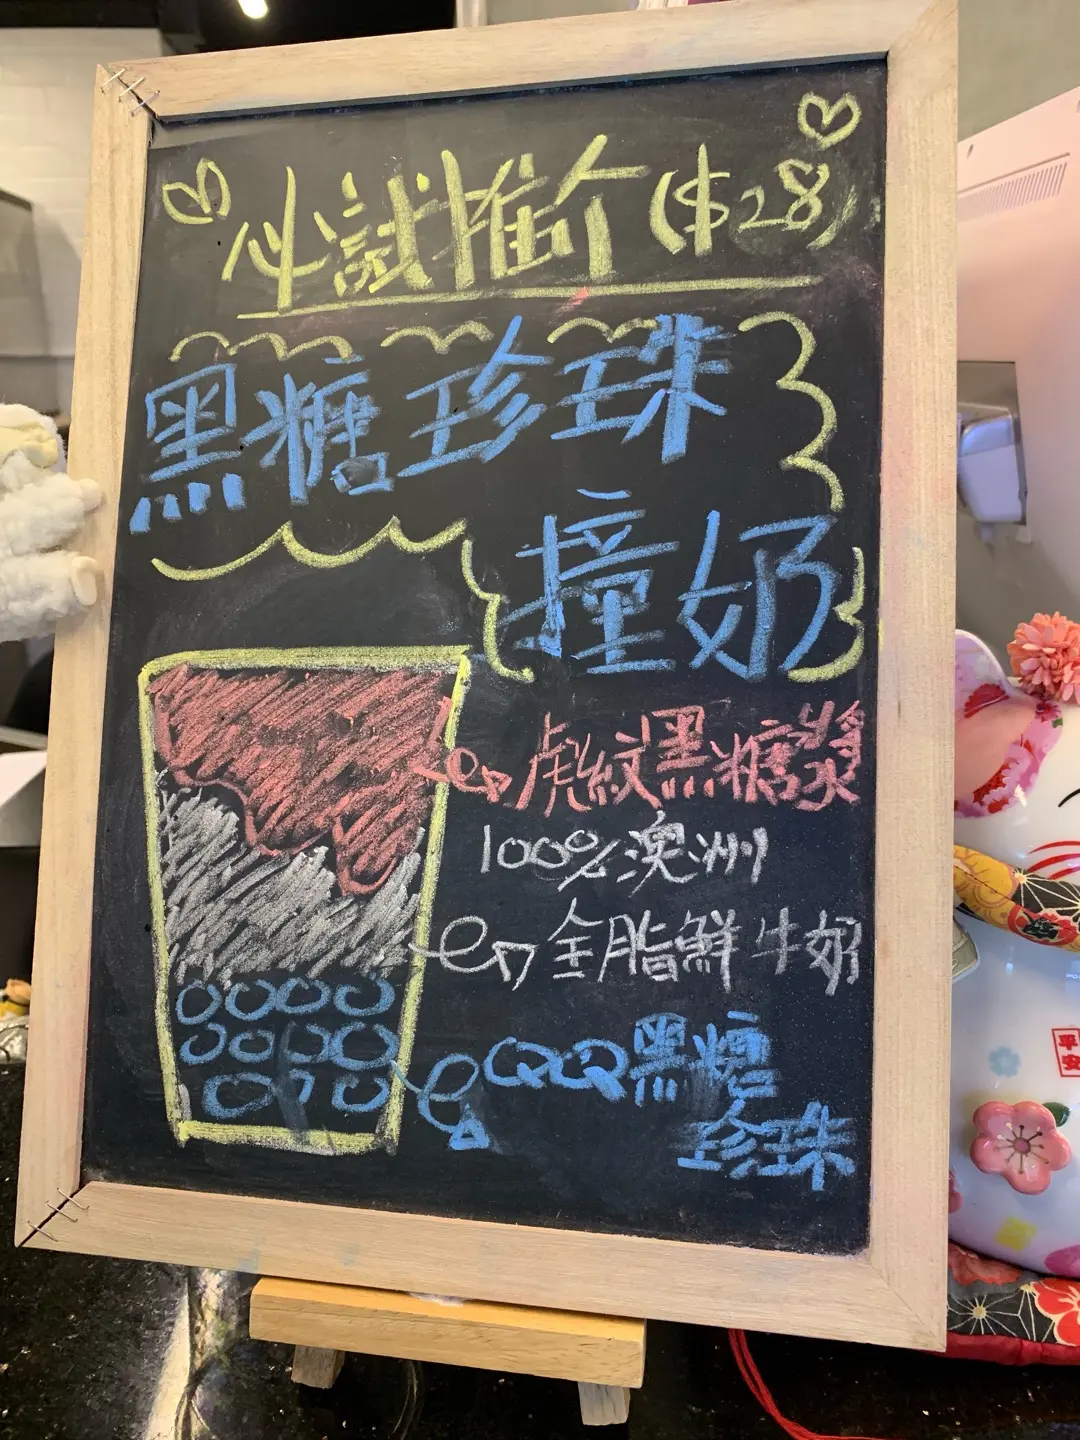 必試推介($28)
黑糖珍珠
撞奶
虎紋黑糖漿
100%澳洲
全脂鮮牛奶
QQ黑糖
珍珠
平安